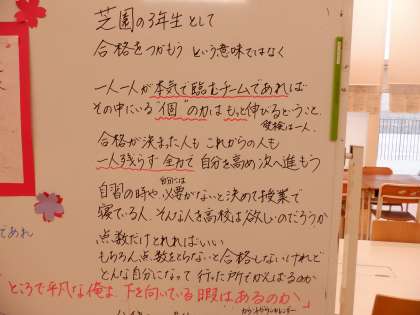 芝園の3年生として
合格をつかもう という意味ではなく
一人一人が本気で臨むチームであれば
その中にいる"個"の力は もっと伸びるということ。
受検は一人、
合格が決まった人も これからの人も
一人残らず 全員で 自分を高め次へ進もう
自分には
自習の時や、必要がないと決めて授業で
寝ている人、そんな人を高校は欲しいのだろうか
点数だけとれればいい
もちろん点数をとらないと合格しないけれど
どんな自分になって 行った所でがんばるのか
であれ
ところで平凡な俺よ 下を向いている暇はあるのか」